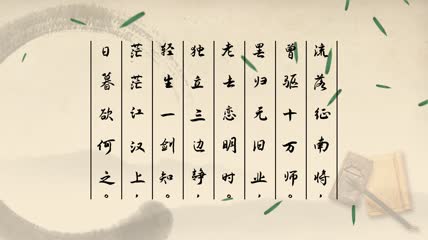 流落征南将，
曾驱十万师。
罢归无旧业，
老去恋明时。
独立三边静，
轻生一剑知。
茫茫江汉上，
日暮欲何之。